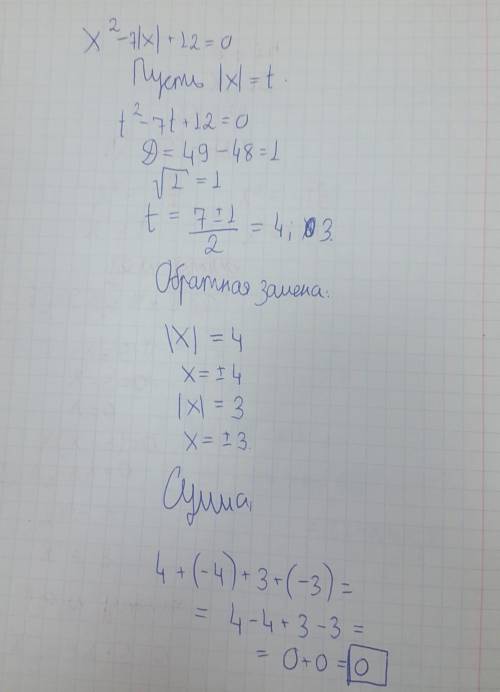 x² - 7|x| + 12 = 0
Пусть |x| = t.
t² - 7t + 12 = 0
D = 49 - 48 = 1
√1 = 1
t = (7 ± 1)/2 = 4; 3.
Обратная замена:
|x| = 4
x = ± 4
|x| = 3
x = ± 3.
Сумма:
4 + (-4) + 3 + (-3) =
= 4 - 4 + 3 - 3 =
= 0 + 0 = 0